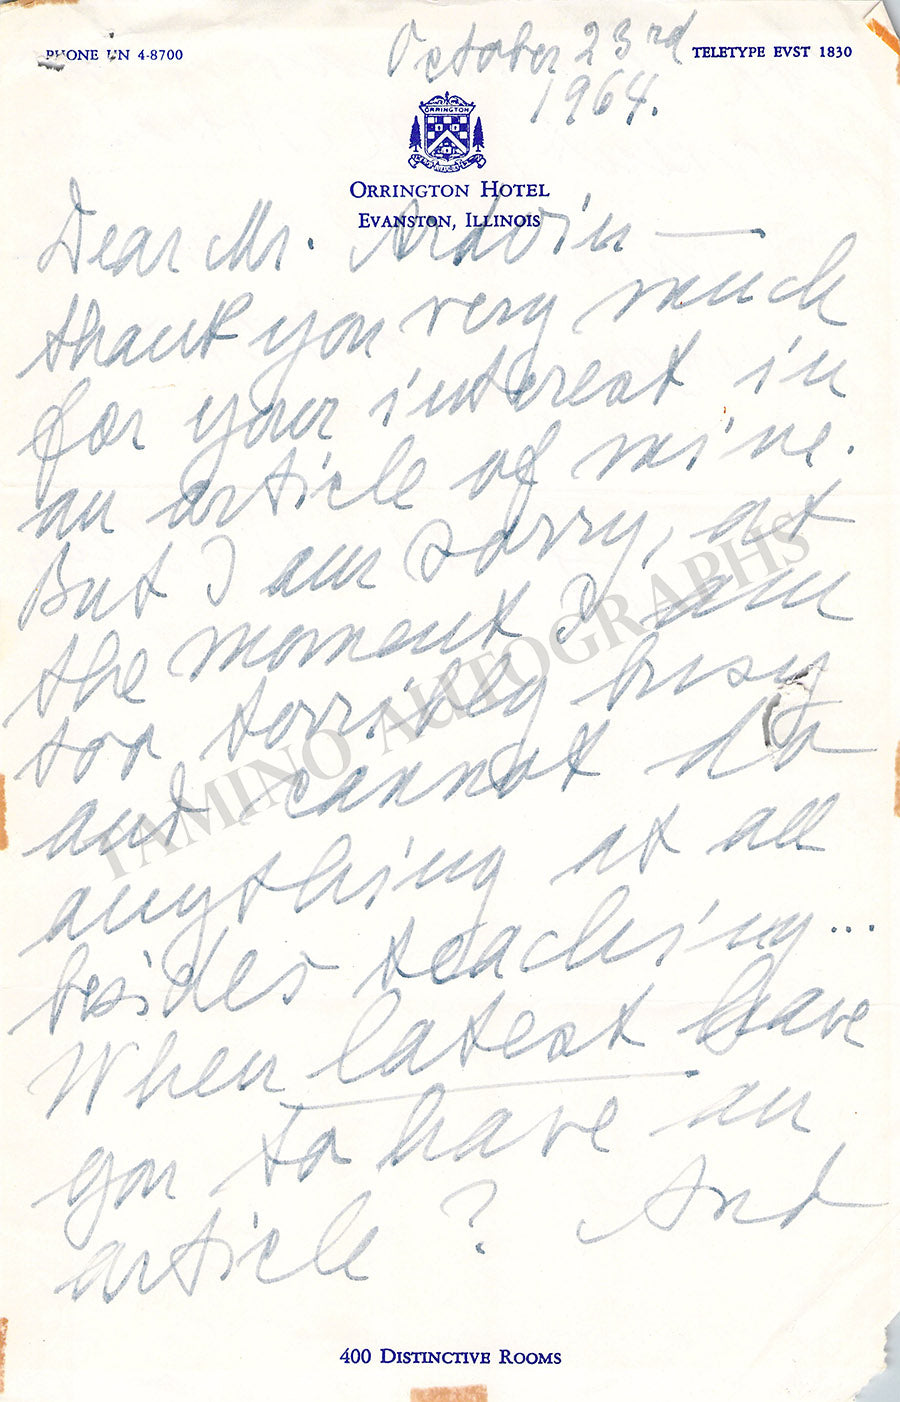 PHONE UN 4-8700
October 23rd
TELETYPE EVST 1830
1964.
ORRINGTON
ORRINGTON HOTEL
EVANSTON, ILLINOIS
Dear Mr. Ardoin —
thank you very much
for your interest in
an article of mine.
But I am sorry, at
the moment I am
too terribly busy
and cannot do
anything at all
besides teaching...
When latest have
you to have an
article? And
400 DISTINCTIVE ROOMS
TAMINO AUTOGRAPHS